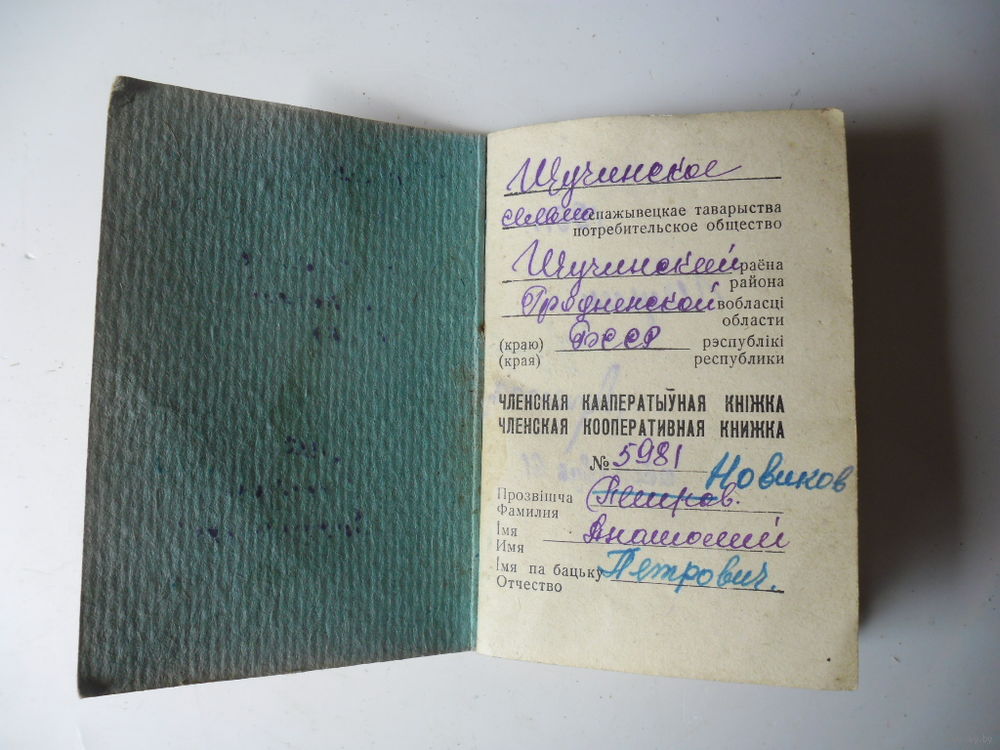 Щучинское
сельпо спажывецкае таварыства
потребительское общество
Щучинский раёна
района
Гродненской вобласці
области
(краю) БССР рэспублікі
(края) республики
ЧЛЕНСКАЯ КААПЕРАТЫЎНАЯ КНІЖКА
ЧЛЕНСКАЯ КООПЕРАТИВНАЯ КНИЖКА
№ 5981
Новиков
Прозвішча Петров.
Фамилия
Імя Анатолий
Имя
Імя па бацьку Петрович.
Отчество